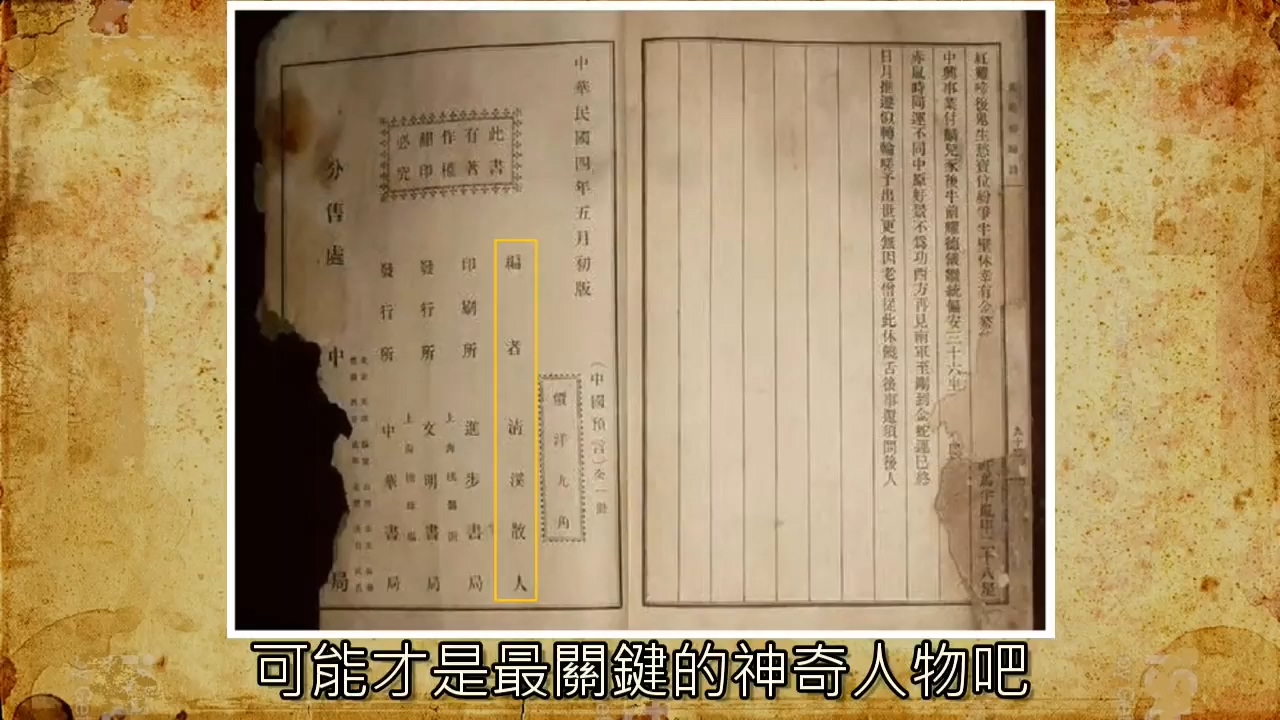 紅雞啼後鬼生愁寶位紛爭半壁休幸有金鰲
中興事業付麟兒豕後牛前耀德儀繼統偏安三十六坐
赤鼠時同運不同中原好景不為功西方再見南軍至剛到金蛇運已終
日月推遷似轉輪嗟予出世更無因老僧從此休饒舌後事還須問後人
(中國預言)全一冊
中華民國四年五月初版
價洋九角
此書
有著
作權
翻印
必究
編者 清溪散人
印刷所 進步書局
上海棋盤街
發行所 文明書局
發行所 中華書局
分售處 中 局
可能才是最關鍵的神奇人物吧